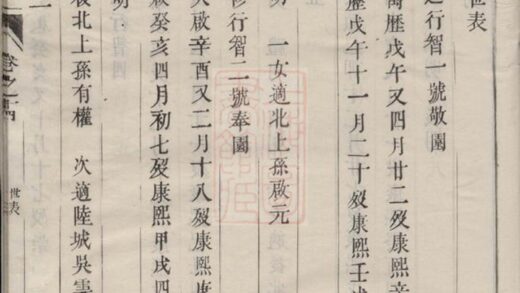 世表
行智一號敬園
萬歷戊午又四月廿二歿康熙辛
歷戊午十一月二十歿康熙壬
一女適北上孫啟元
行智二號奉園
啟辛酉又二月十八歿康熙
啟癸亥四月初七歿康熙甲戌四
適北上孫有權 次適陸城吳
世表
卷之